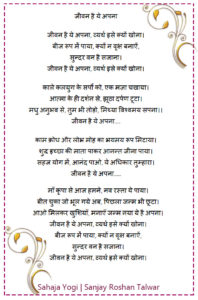 जीवन है ये अपना
जीवन है ये अपना, व्यर्थ इसे क्यों खोना।
बीज रूप में पाया, क्यों न वृक्ष बनाएँ,
सुन्दर वन है सजाना।
जीवन है ये अपना, व्यर्थ इसे क्यों खोना।
काले कलयुग के सर्पों को, एक मज़ा चखाया।
आत्मा के ही दर्शन से, झूठा दर्पण टूटा।
मधु अनुभव से, तुम भी तोड़ो, मिथ्या विश्वमय सपना।।
जीवन है ये अपना...
काम क्रोध और लोभ मोह का भयमय रूप मिटाया।
शुद्ध हृदया की माता पाकर आनन्त जीना पाया।
सहज योग में, आनंद पाओ, ये अधिकार तुम्हारा।
जीवन है ये अपना....
माँ कृपा से आज हमने, नव रस्ता ये पाया।
बीत चुका जो भूल गये अब, पिछला जन्म भी छूटा।
आओ मिलकर खुशियाँ, मनाएं जन्म नया ये है अपना।
जीवन है ये अपना, व्यर्थ इसे क्यों खोना।
बीज रूप में पाया, क्यों न वृक्ष बनाएँ,
सुन्दर वन है सजाना।
जीवन है ये अपना, व्यर्थ इसे क्यों खोना।
Sahaja Yogi | Sanjay Roshan Talwar